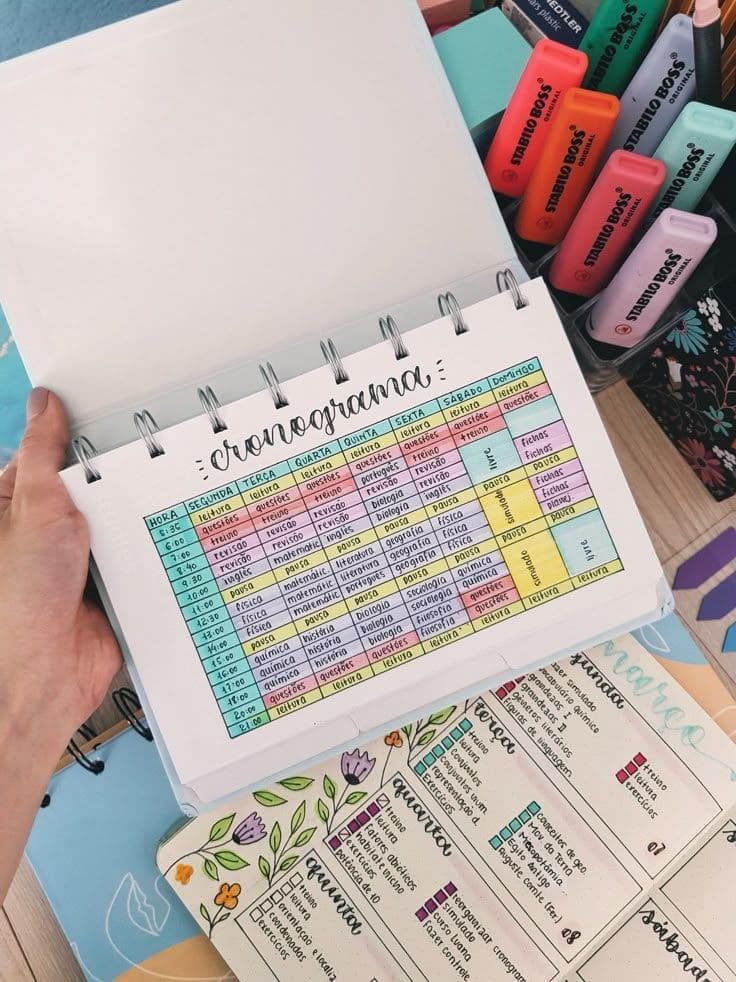 cronograma
HORA SEGUNDA TERÇA QUARTA QUINTA SEXTA SÁBADO DOMINGO
5:35 leitura leitura leitura leitura leitura leitura leitura
6:00 questões questões questões questões questões questões questões
7:00 treino treino treino português treino treino
8:40 revisão revisão revisão revisão revisão livre fichas
9:30 revisão revisão revisão biologia revisão fichas
10:00 inglês matemátic inglês biologia inglês pausa
11:00 pausa pausa pausa pausa pausa pausa fichas
12:00 física matemátic literatura geografia física simulado fichas
13:00 física matemátic literatura geografia física planej
14:00 física matemátic português geografia física pausa
15:00 pausa pausa pausa pausa pausa pausa
16:00 química história biologia sociologia química simulado livre
17:00 química história biologia sociologia química
18:00 química história biologia filosofia questões
20:00 questões questões questões questões questões
21:00 leitura leitura leitura leitura leitura leitura leitura
STABILO BOSS ORIGINAL
STABILO BOSS ORIGINAL
STABILO BOSS ORIGINAL
STABILO BOSS ORIGINAL
STABILO BOSS ORIGINAL
STABILO BOSS ORIGINAL
STABILO BOSS
STAEDTLER
plastic
março
segunda
fazer simulado
vestibulário químico
grandezas I
grandezas II
gêneros literários
figuras de linguagem
treino
leitura
exercícios
07
terça
treino
leitura
conjuntos
conjuntos num
representação d
Exercícios
conceitos de geo.
Mov da Terra
Mesopotâmia
Egito Antigo
Auguste Comte (Fer.)
08
quarta
treino
leitura
fatores abióticos
habitat e nicho
exercícios
potência de 10
reorganizar cronogram
simulado
curso Luana
fazer controle
quinta
treino
leitura
orientação e localiz
coordenadas
exercícios
sábado